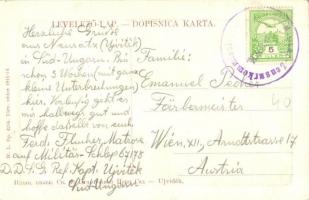 LEVELEZŐ-LAP. – DOPISNICA KARTA.
Herzliche Grüsse
aus Neusatz (Ujviték)
in Süd-Ungarn. Bin
schon 3 Wochen (mit ganz
kleine Unterbrechungen)
hier. Vorläufig geht es
mir halbwegs gut und
hoffe dasselbe von euch.
Ferd. Matros
auf Militär-Schlep 67178
D.D.S.G. Ref. Kapt. Ujviték
Süd-Ungarn
Familie:
Emanuel
Färbermeister
Wien, XII, Arndtstrasse 17
Austria
40
5
Ujvidék.